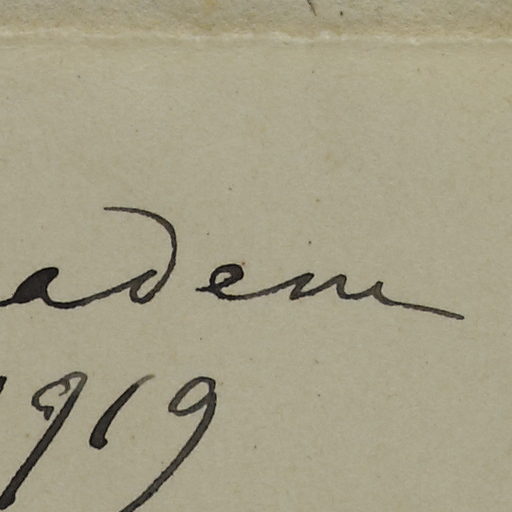 adem
1919